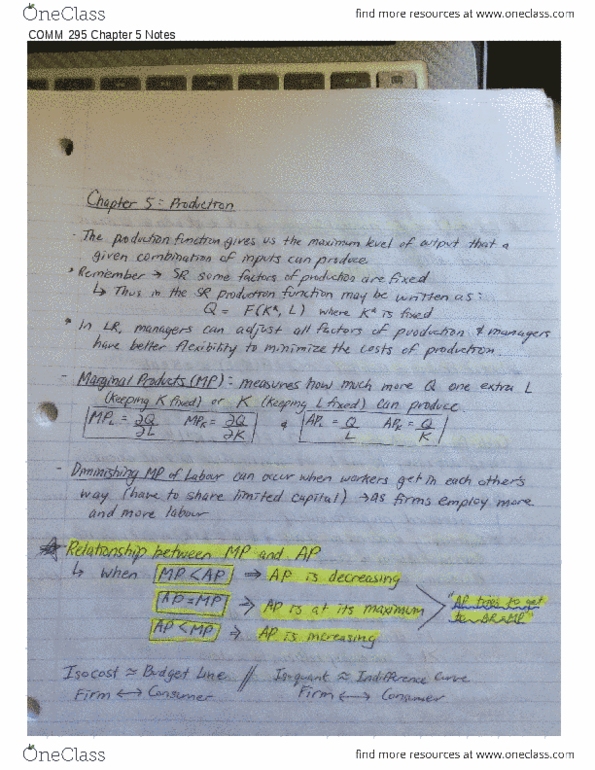 OneClass find more resources at www.oneclass.com
COMM 295 Chapter 5 Notes
Chapter 5: Production
- The production function gives us the maximum level of output that a
given combination of inputs can produce.
• Remember → SR some factors of production are fixed
↳ Thus in the SR production function may be written as:
Q = F(K*, L) where K* is fixed
• In LR, managers can adjust all factors of production & managers
have better flexibility to minimize the costs of production.
- Marginal Products (MP): measures how much more Q one extra L
(keeping K fixed) or K (keeping L fixed) can produce.
MP_L = ∂Q/∂L MP_K = ∂Q/∂K & AP_L = Q/L AP_K = Q/K
- Diminishing MP of Labour can occur when workers get in each other's
way (have to share limited capital) → as firms employ more
and more labour
Relationship between MP and AP
↳ when MP < AP ⇒ AP is decreasing
AP = MP ⇒ AP is at its maximum
"AP tries to get
to
AP < MP ⇒ AP is increasing
Isocost ≈ Budget Line // Isoquant ≈ Indifference Curve
Firm ↔ Consumer Firm ↔ Consumer
OneClass find more resources at www.oneclass.com